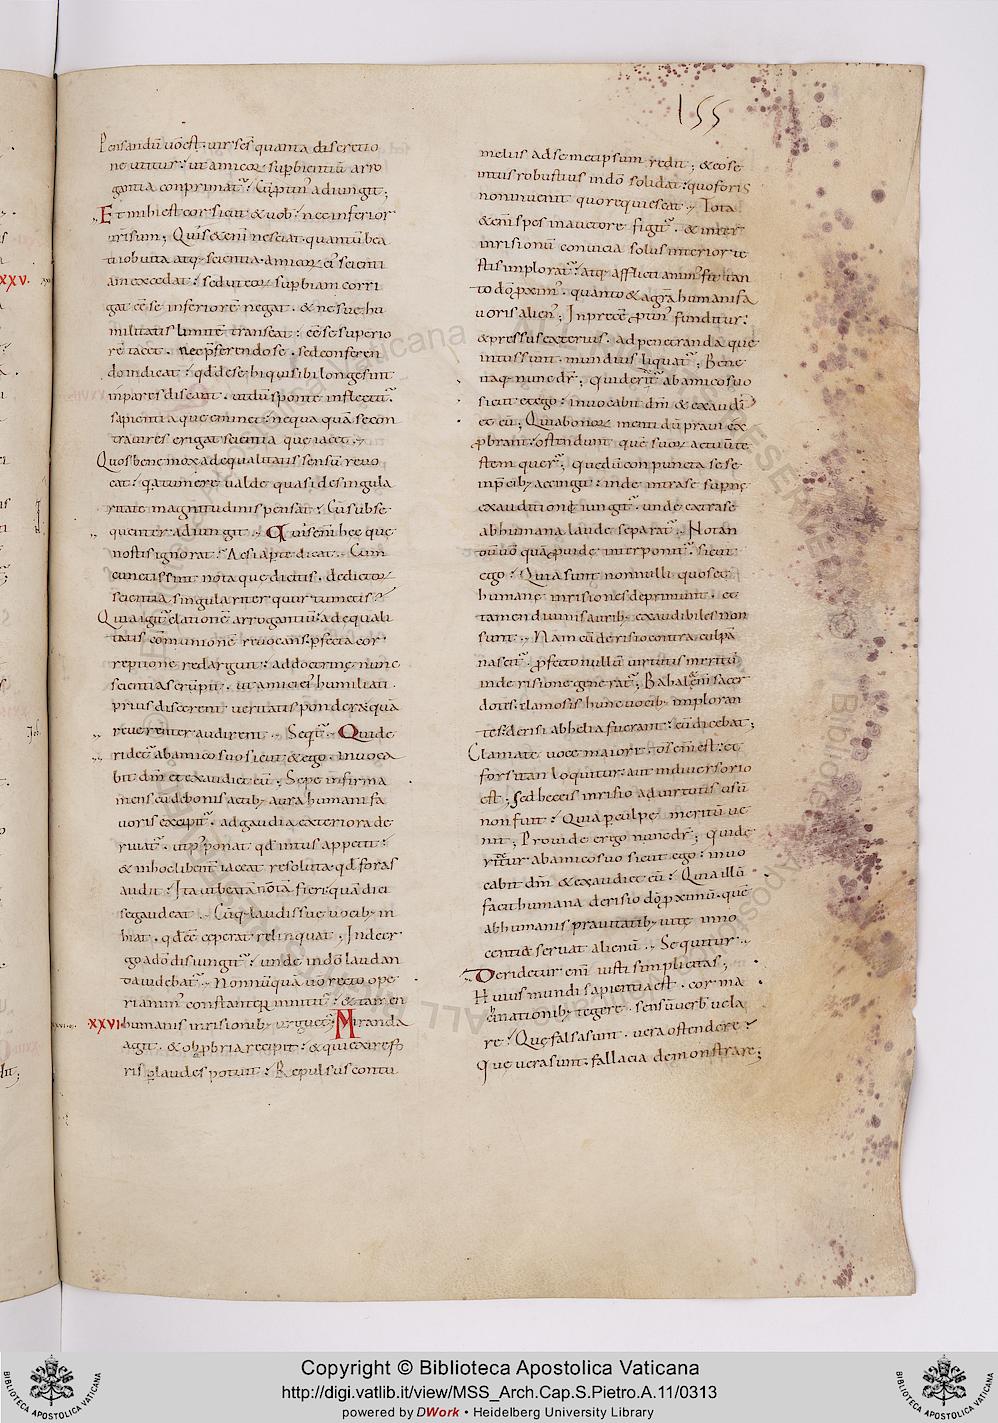 155
Pensandū uō est. uir scs quanta discretio
ne utitur. ut amicor superbientiū arro
gantia conprimatur. Cū protinus adiungit;
Et mihi est cor sicut & uob. nec inferior
urī sum; Quis & enī nesciat. quantū bea
ti iob uita atq; scientia. amicor ei scienti
am excedat. sed ut eor superbiam corri
gat. eē se inferiorē negat. & ne suę hu
militatis limitē transeat. eē se superio
rē tacet. Nec pferendo se. sed conferen
do indicat. qd de se hi qui sibi longe sunt
inpares discant. ut dū sponte inflectit
sapientia quę eminet. nequaquā se con
tra uires erigat scientia quę iacet.
Quos bene mox ad equalitatis sensū reuo
cat. q atumere ualde quasi de singula
ritate magnitudinis pensat. Cū subse
quenter adiungit. Quis enī hęc quę
nostis ignorat. Ac si apte dicat. Cum
cunctis sint nota quę dicitis. de dictor
scientia singulariter quur tumetis?
Quia igit elationē arrogantiū. ad equali
tatis cōmunionē reuocans. pfecta cor
reptione redarguit. ad doctrinę nunc
scientias erūpit. ut amici ei humiliati.
prius discerent ueritatis pondera. quā
reuerenter audirent. Sequit. Qui de
ridet ab amico suo sicut & ego. inuoca
bit dm et exaudiet eū. Sepe infirma
mens cū de bonis actib; aura humani fa
uoris excipit. ad gaudia exteriora de
riuat. ut postponat qd intus appetit.
& in hoc libent iaceat resoluta. qd foras
audit. Ita ut beatā nōtā fieri quā dici
se gaudeat. Cūq; laudis suę uocib; in
hiat. qd eē ceperat relinquat. Inde er
go a dō disiungit. unde in dō laudan
da uidebat. Nonnūquā uō recto ope
ri animus constanter innitit. & tamen
XXVI humanis inrisionib; urguet; Miranda
agit. & obprobria recipit. & qui exire fo
ris p laudes potuit. Repulsus contu
melus ad semetipsum redit; & eo se
intus robustius in dō solidat. quo foris
non inuenit quo requiescat. Tota
& enī spes in auctore figit. & inter
inrisionū conuicia solus interior te
stis implorat. atq; afflicti animus fit tan
to dō proximus. quanto & a gra humani fa
uoris alienus. In precē protinus funditur.
& pressus exterius. ad penetranda quę
intus sunt mundius liquat. Bene
itaq; nunc dr. qui deridetur ab amico suo
sicut et ego. inuocabit dm & exaudi
et eū; Quia bonor mentē dū praui ex
probrant. ostendunt quē suor actuū te
stem querant. quę dū conpuncta se se
in precib; accingit. inde intra se supnę
exauditioni iungit. unde extra se
ab humana laude separat. Notan
dū uō quā prouide interponit. sicut
ego. Quia sunt nonnulli quos &
humanę inrisiones deprimunt. et
tamen diuinis aurib; exaudibiles non
sunt. Nam cū derisio contra culpā
nascit. profecto nullū uirtutis meritū
in derisione generat; Bahal enī sacer
dotes. clamosis hunc uocib; imploran
tes. derisi ab helia fuerant. cū diceba t;
Clamate uoce maiore. ds enī est. et
forsitan loquitur. aut in diuersorio
est; Sed hęc eis inrisio ad uirtutis usū
non fuit. Quia p culpę meritū ue
nit; Prouide ergo nunc dr; qui de
ridetur ab amico suo sicut ego. inuo
cabit dm & exaudiet eū. Quia illū
facit humana derisio dō proximū. quē
ab humanis prauitatib; uitę inno
centia seruat alienū. Sequitur.
Deridetur enī iusti simplicitas;
Huius mundi sapientia est. cor ma
chinationib; tegere. sensū uerb uela
re. Quę falsa sunt. uera ostendere
Quę uera sunt. fallacia demonstrare;
Copyright © Biblioteca Apostolica Vaticana
http://digi.vatlib.it/view/MSS_Arch.Cap.S.Pietro.A.11/0313
powered by DWork • Heidelberg University Library